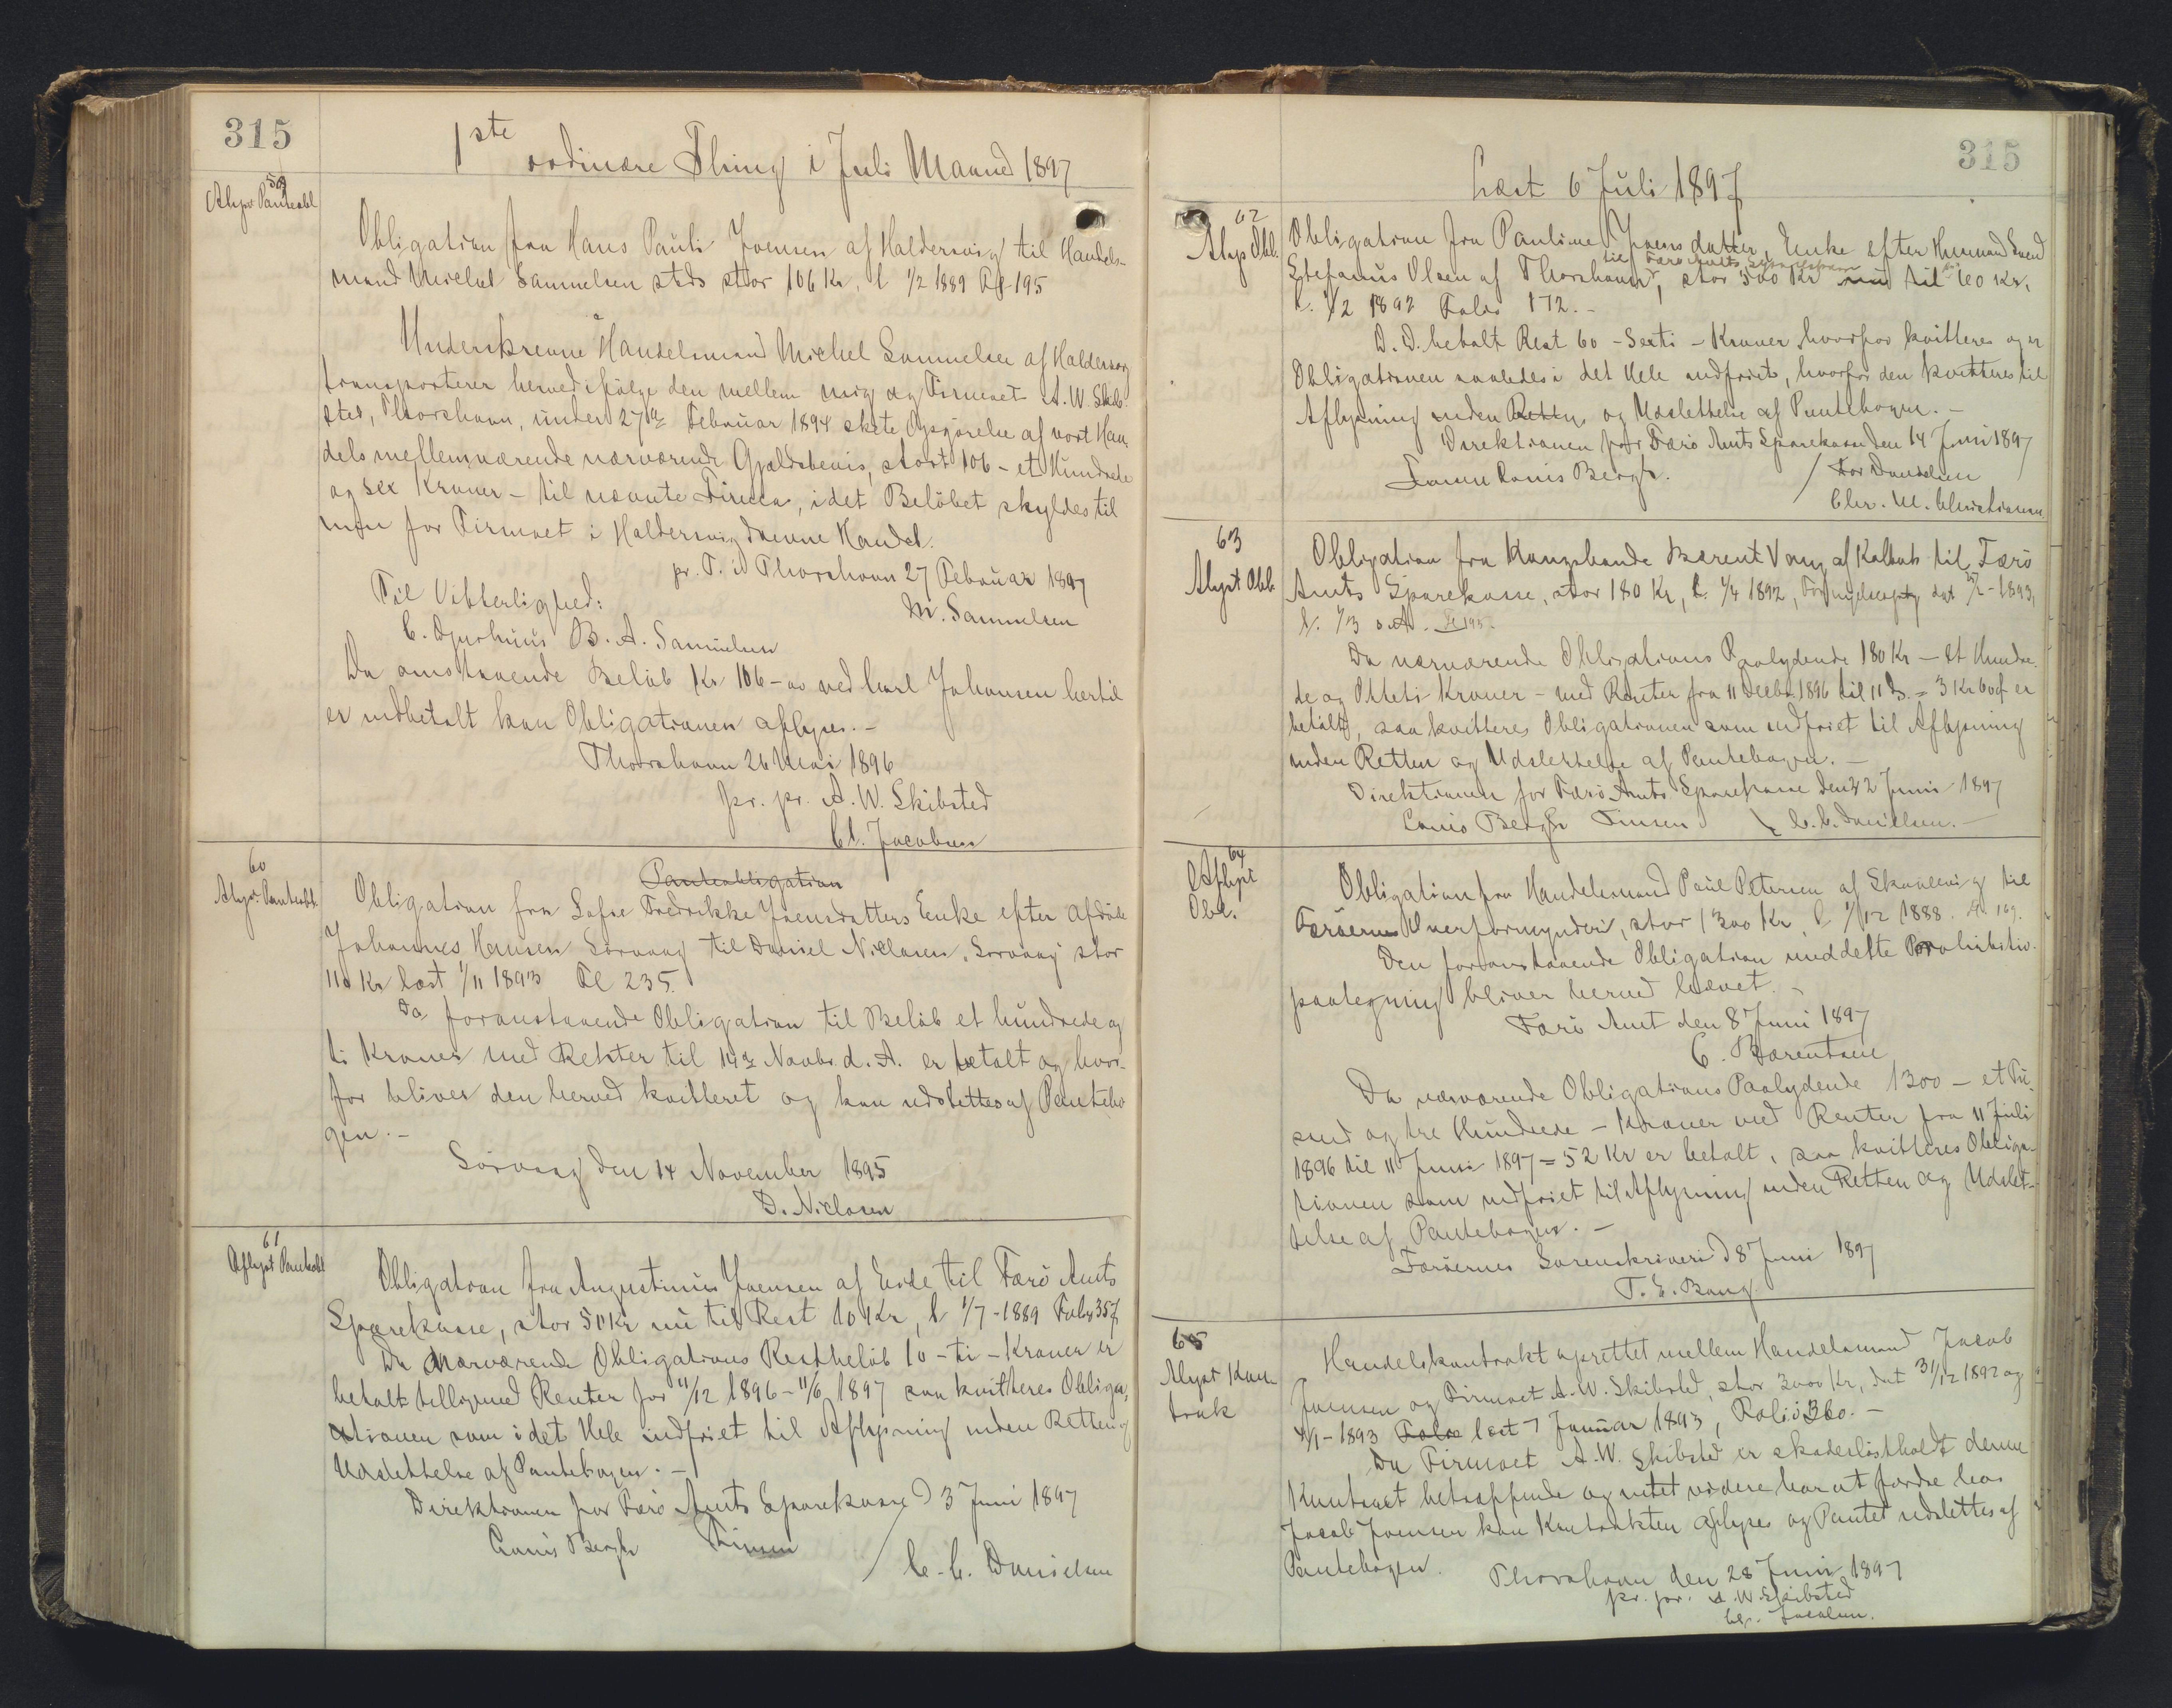 315
1ste ordinære Thing i Juli Maaned 1897
59
Alyst Panteobl
Obligation fra Hans Pauli Joensen af Haldersvig til Handels-
mand Michel Samuelsen steds stor 106 Kr, l 1/2 1889 Fol 195
Underskrevne Handelsmand Michel Samuelsen af Haldersvig
transporterer herved ifølge den mellem mig og Firmaet A. W. Skib-
sted, Thorshavn, under 27de Februar 1894 skete Opgjørelse af vort Han
delsmellemværende nærværende Gjældsbevis, stort 106 - et Hundrede
og sex Kroner - til nævnte Firma, idet Beløbet skyldes til
min for Firmaet i Haldersvig drevne Handel.
pr. T. i Thorshavn 27 Februar 1897
Til Vitterlighed:
M. Samuelsen
C. Djurhuus B. A. Samuelsen
Da omstaaende Beløb Kr 106 - ved Carl Johansen hertil
er indbetalt kan Obligationen aflyses. -
Thorshavn 26 Mai 1896
pr. pr. A. W. Skibsted
Cl. Jacobsen
60
Alyst Panteobl.
Panteobligation
Obligation fra Sofie Fredrikke Joensdatters Enke efter afdøde
Johannes Hansen Sørvaag til Daniel Niclasen, Sørvaag stor
110 Kr læst 1/11 1893 Fol 235.
Da foranstaaende Obligation til Beløb et hundrede og
ti Kroner med Renter til 14de Novbr. d. A. er betalt og hvor-
for bliver den herved kvitteret og kan udslettes af Pantebo
gen. -
Sørvaag den 14 November 1895
D. Niclasen
61
Aflyst Panteobl
Obligation fra Augustinus Joensen af Eide til Færø Amts
Sparekasse, stor 50 Kr nu til Rest 10 Kr, l 1/7 - 1889 Folio 357
Da nærværende Obligations Restbeløb 10 - ti - Kroner er
betalt tilligemed Renter for 11/12 1896 - 11/6 1897 saa kvitteres Obliga-
ationen som i det Hele indfriet til Aflysning inden Retten og
Udslettelse af Pantebogen. -
Direktionen for Færø Amts Sparekasse D 3 Juni 1897
Louis Bergh Finsen / C. C. Danielsen
315
Læst 6 Juli 1897
62
Alyst Obl.
Obligation fra Pauline Joensdatter, Enke efter Husmand Svend
til Færø Amts Sparekasse
Stefanus Olsen af Thorshavn, stor 500 Kr nu til 60 Kr,
l. 1/2 1892 Folio 172. -
D. D. betalt Rest 60 - Sexti - Kroner hvorfor kvitteres og er
Obligationen saaledes i det Hele indfriet, hvorfor den kvitteres til
Aflysning inden Retten og Udslettelse af Pantebogen. -
Direktionen for Færø Amts Sparekasse den 14 Juni 1897
Louis Bergh. / Danielsen
Chr. M. Christiansen
63
Alyst Obl
Obligation fra Kongsbonde Barent Vang af Kalbak til Færø
Amts Sparekasse, stor 180 Kr, l. 1/4 1892, dat - 1893,
l. 1/3 s. A. Fol 195.
Da nærværende Obligations Paalydende 180 Kr - et Hundre-
de og Otteti Kroner - med Renter fra 11 Decbr 1896 til 11 ds. = 3 Kr 60 Ø er
betalt, saa kvitteres Obligationen som indfriet til Aflysning
inden Retten og Udslettelse af Pantebogen. -
Direktionen for Færø Amts Sparekasse den 22 Juni 1897
Louis Bergh Finsen / C. C. Danielsen. -
64
Aflyst
Obl.
Obligation fra Handelsmand Paul Petersen af Skaalevig til
Færøernes Overformynderi, stor 1300 Kr, l 1/12 1888. Fol. 169.
Den foranstaaende Obligation meddelte Prohibitiv-
paategning bliver herved hævet. -
Færø Amt den 8 Juni 1897
C. Bærentsen
Da nærværende Obligations Paalydende 1300 - et Tu-
sind og tre Hundrede - Kroner med Renter fra 11 Juli
1896 til 11 Juni 1897 = 52 Kr er betalt, saa kvitteres Obliga-
tionen som indfriet til Aflysning inden Retten og Udslet-
telse af Pantebogen. -
Færøernes Sorenskriveri D 8 Juni 1897
T. E. Bang
65
Alyst Kon
trak
Handelskontrakt oprettet mellem Handelsmand Jacob
Joensen og Firmaet A. W. Skibsted, stor 3000 Kr, dat 31/12 1892 og
4/1 - 1893 Folio læst 7 Januar 1893, Folio 360. -
Da Firmaet A. W. Skibsted er skadesløstholdt denne
Kontract betræffende og intet videre har at fordre hos
Jacob Joensen kan Kontrakten aflyses og Pantet udslettes af
Pantebogen.
Thorshavn den 28 Juni 1897
pr. pr. A. W. Skibsted
Cl. Jacobsen.